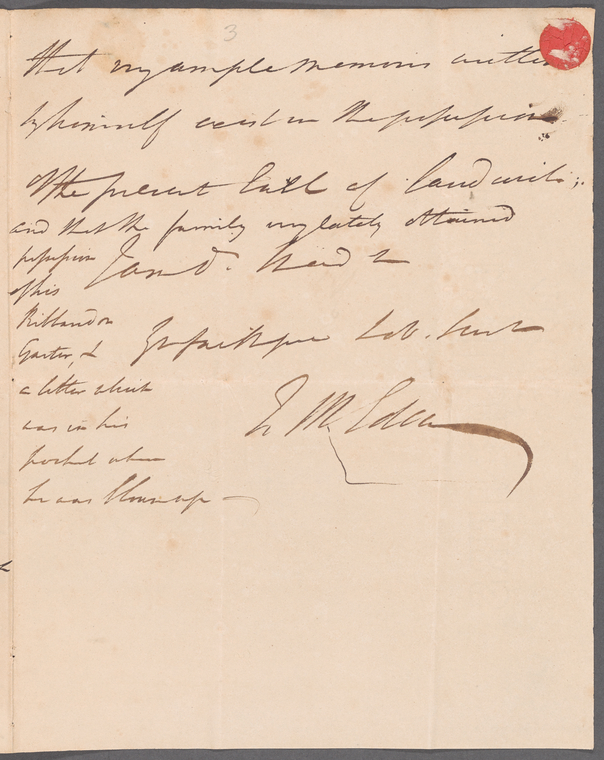 3
that very ample memoirs written
by himself exist in the possession
of the present Earl of Sandwich;
and that the family very lately obtained
possession
of his
Ribband or
Garter, &
a letter which
was in his
pocket when
he was blown up
I am Dr. Sir
Yr faithful Hb. Sert
F M Eden